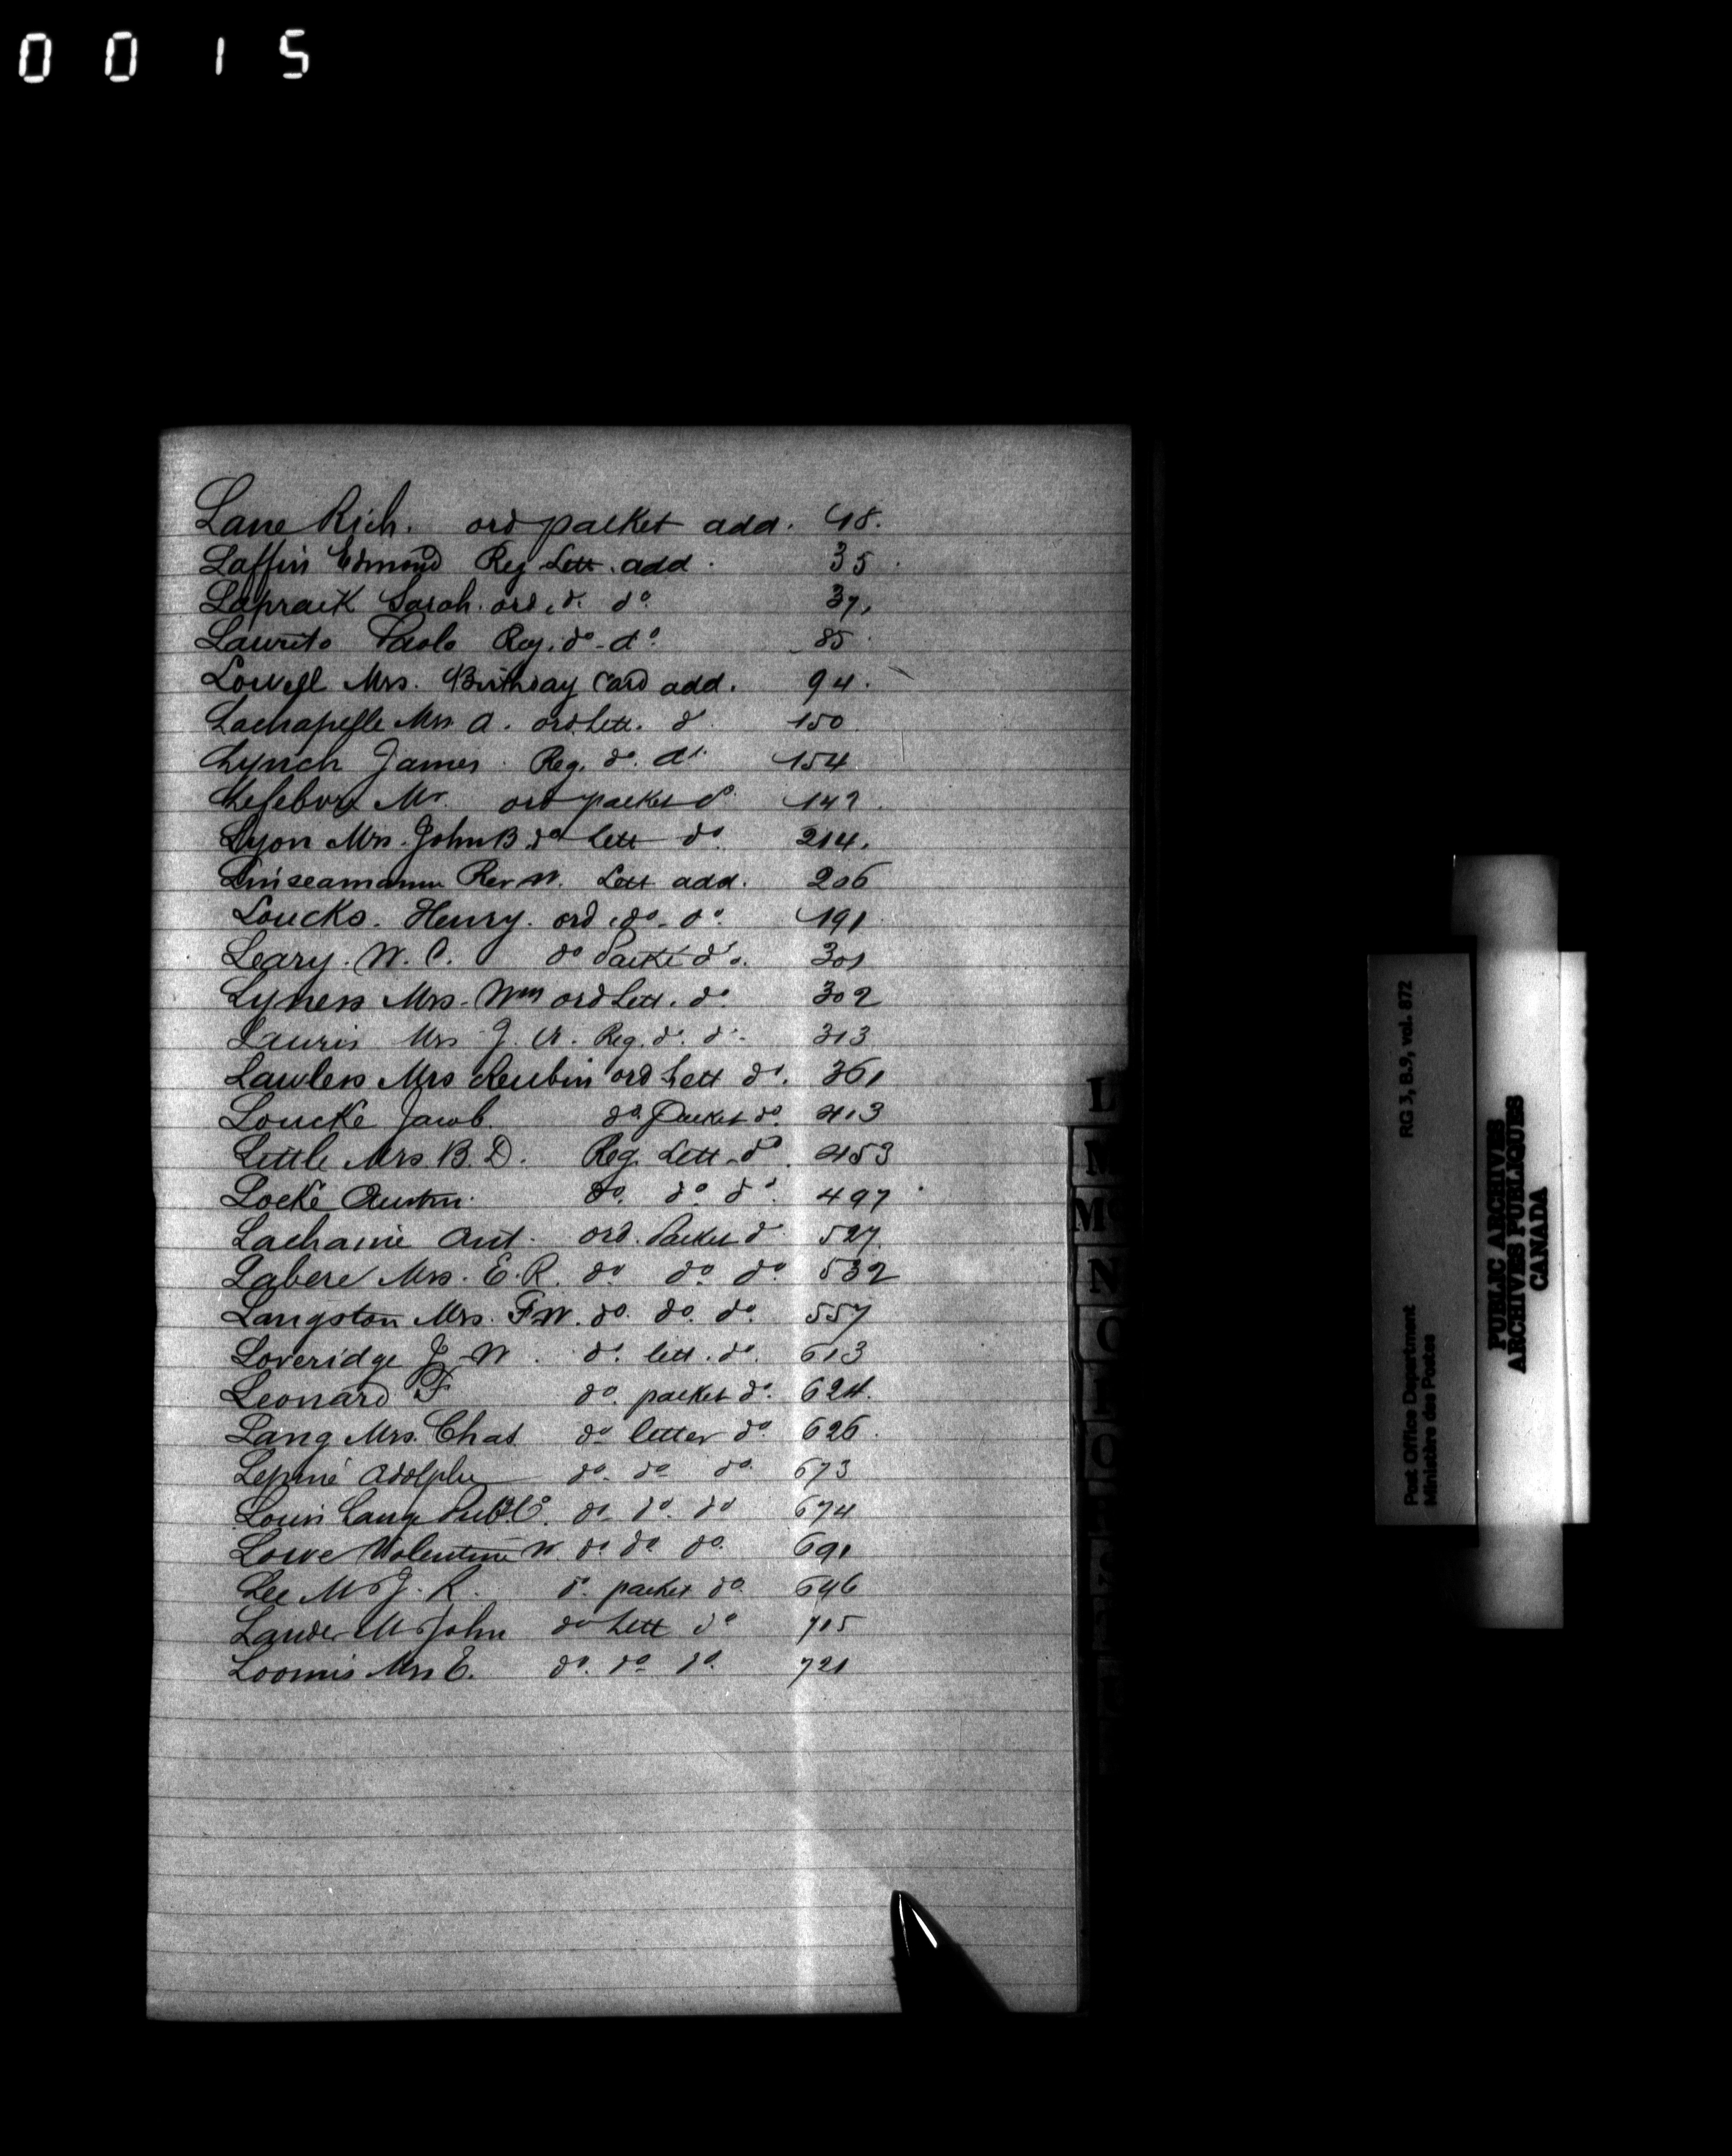 0015
Lane Rich. ord packet add. 48.
Laffin Edmond Reg Lett. add. 35.
Lapraik Sarah. ord. do. do. 37.
Laurito Paolo Reg. do. do. 85.
Lowell Mrs. Birthday Card add. 94.
Lachapelle Mrs. A. ord. Lett. do 150
Lynch James. Reg. do. do. 154
Lefebvre Mr. ord packet do 142.
Lyon Mrs. John B. do Lett do. 214.
Rev W. Lett add. 206
Loucks. Henry. ord. do. do. 191
Leary. W. C. do Packt do. 301
Lyness Mrs. Wm ord Lett. do. 302
Lauris Mrs J. A. Reg. do. do. 313
Lawless Mrs Reubin ord Lett do. 361
Loucke Jacob. do. Packet do. 413
Little Mrs. B. D. Reg. Lett. do. 453
Locke Austin. do. do. do. 497
Lachaine Ant. ord. Packet do 527.
Labere Mrs. E. R. do do. do. 532
Langston Mrs. F W. do. do. do. 557
Loveridge J. W. do. lett. do. 613
Leonard F do. packet do. 624.
Lang Mrs. Chas do. letter do. 626.
Lepine Adolphe do. do do. 673
Louis Lang Publ. Co. do. do. do 674
Lowe Valentine W. do. do. do. 691
Lee Mrs J. R. do. packet do. 646
Lauder Mr John do Lett do 715
Loomis Mrs E. do. do do. 721
L
M
N
O
Post Office Department
Ministère des Postes
RG 3, B.9, vol. 872
PUBLIC ARCHIVES
ARCHIVES PUBLIQUES
CANADA